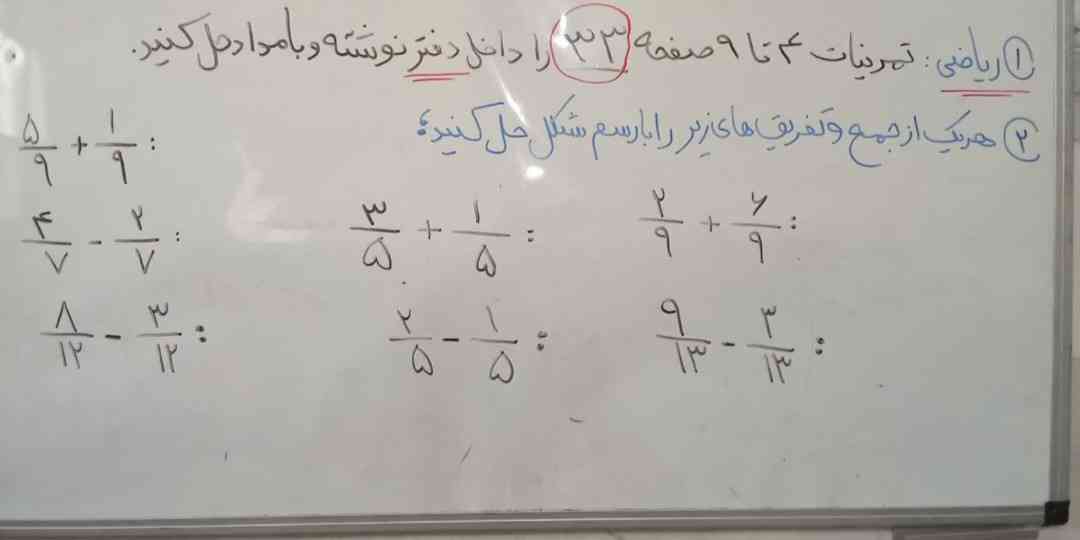 ① ریاضی: تمرینات ۴ تا ۹ صفحه ۳۳ را داخل دفتر نوشته و با مداد حل کنید.
② هریک از جمع و تفریق های زیر را با رسم شکل حل کنید:
۵/۹ + ۱/۹ :
۲/۹ + ۶/۹ :
۳/۵ + ۱/۵ :
۴/۷ - ۲/۷ :
۹/۱۳ - ۳/۱۳ :
۲/۵ - ۱/۵ :
۸/۱۲ - ۳/۱۲ :